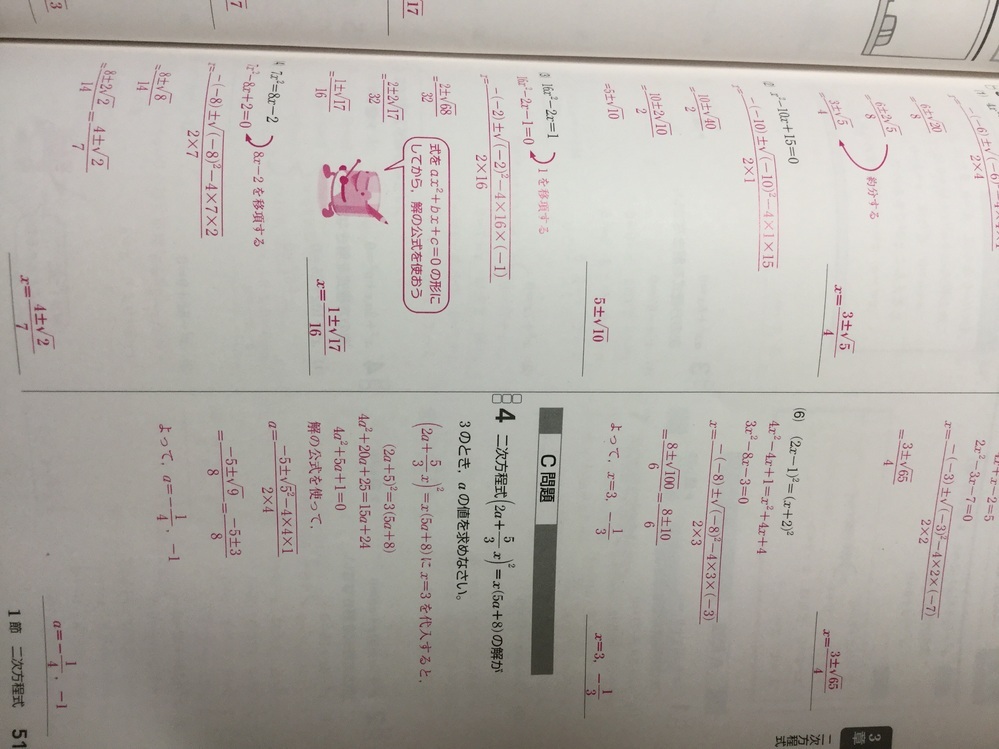 x=3±√5/4
約分する
6±√20/8
=6±2√5/8
=3±√5/4
x²-10x+15=0
x=-(-10)±√(-10)²-4×1×15/2×1
=10±√40/2
=10±2√10/2
=5±√10
5±√10
③ 16x²-2x=1
16x²-2x-1=0
1を移項する
x=-(-2)±√(-2)²-4×16×(-1)/2×16
=2±√68/32
=2±2√17/32
=1±√17/16
式を ax²+bx+c=0 の形に
してから，解の公式を使おう
x=1±√17/16
④ 7x²=8x-2
7x²-8x+2=0
8x-2を移項する
x=-(-8)±√(-8)²-4×7×2/2×7
=8±√8/14
=8±2√2/14=4±√2/7
x=4±√2/7
2x²-3x-7=0
x=-(-3)±√(-3)²-4×2×(-7)/2×2
=3±√65/4
x=3±√65/4
(6) (2x-1)²=(x+2)²
4x²-4x+1=x²+4x+4
3x²-8x-3=0
x=-(-8)±√(-8)²-4×3×(-3)/2×3
=8±√100/6=8±10/6
よって，x=3，-1/3
x=3，-1/3
C 問題
4 二次方程式(2a+5/3x)²=x(5a+8)の解が
3のとき，aの値を求めなさい。
(2a+5/3x)²=x(5a+8)にx=3を代入すると，
(2a+5)²=3(5a+8)
4a²+20a+25=15a+24
4a²+5a+1=0
解の公式を使って，
a=-5±√5²-4×4×1/2×4
=-5±√9/8=-5±3/8
よって，a=-1/4，-1
a=-1/4，-1
3章
二次方程式
1節 二次方程式 51